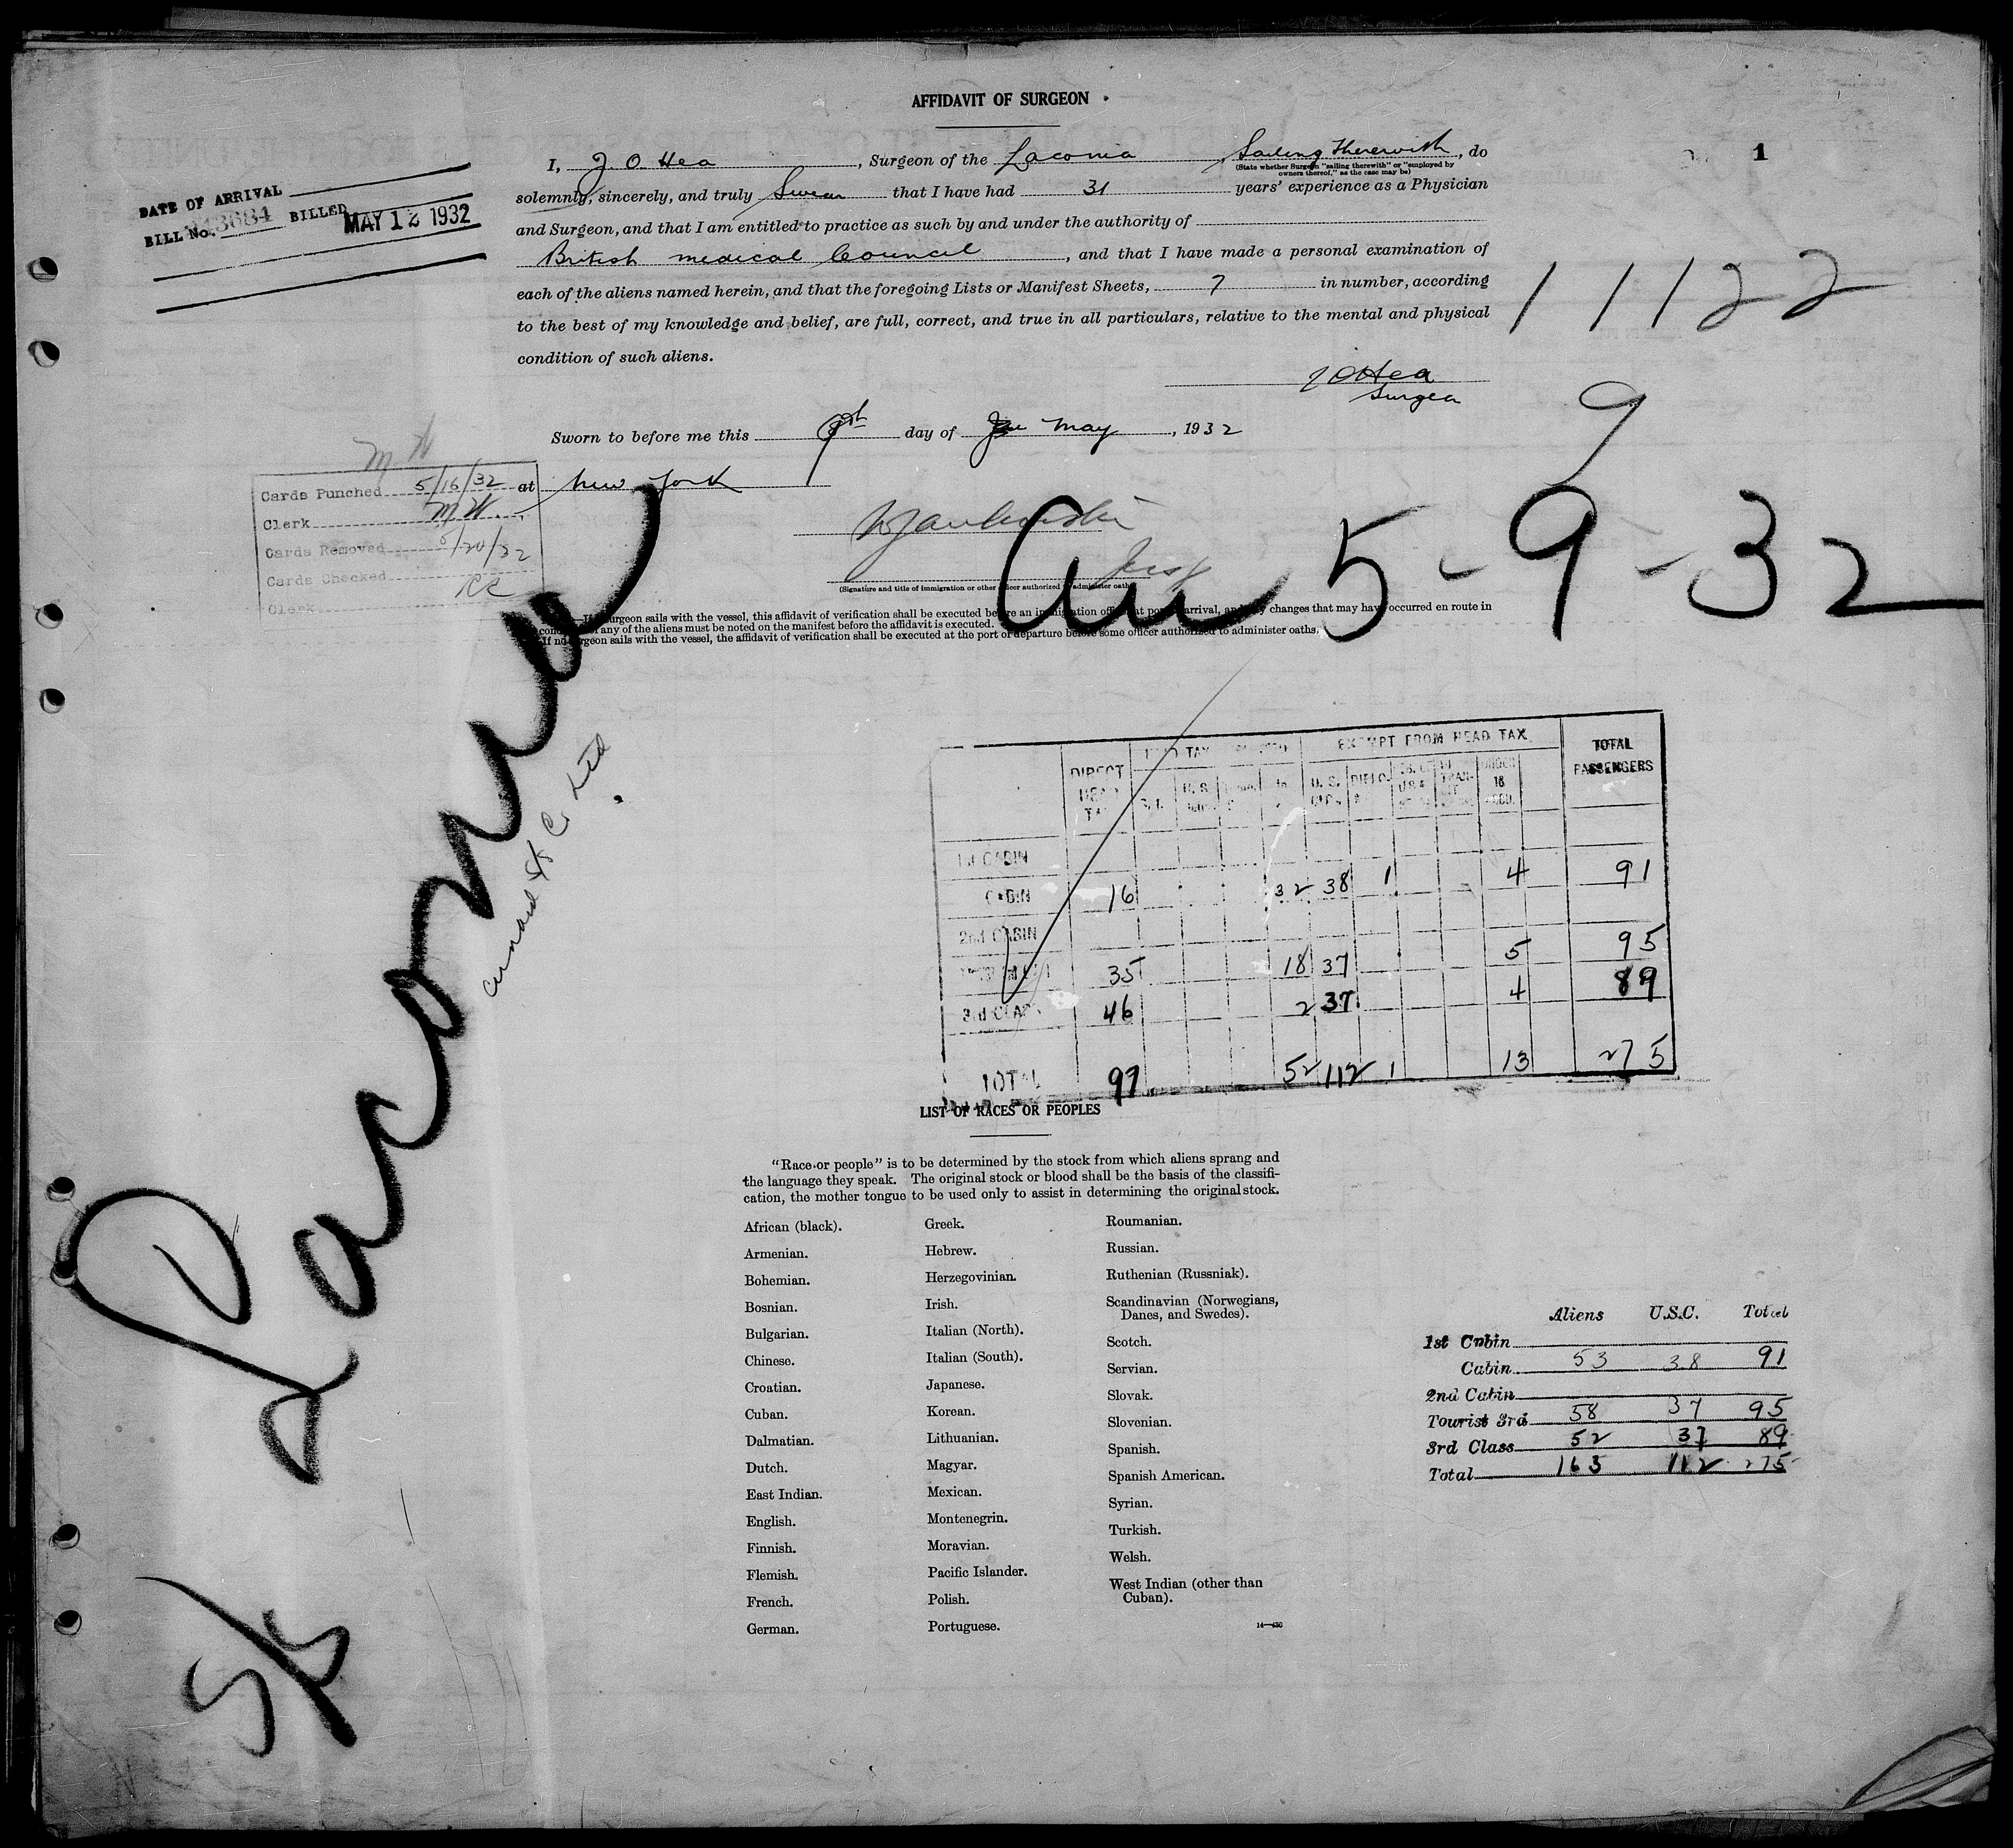 AFFIDAVIT OF SURGEON
1
I, J. O. Hea, Surgeon of the Laconia, Sailing Therewith, do
(State whether Surgeon "sailing therewith" or "employed by
owners thereof," as the case may be)
solemnly, sincerely, and truly Swear that I have had 31 years' experience as a Physician
and Surgeon, and that I am entitled to practice as such by and under the authority of
British medical Council, and that I have made a personal examination of
each of the aliens named herein, and that the foregoing Lists or Manifest Sheets, 7 in number, according
to the best of my knowledge and belief, are full, correct, and true in all particulars, relative to the mental and physical
condition of such aliens.
DATE OF ARRIVAL
BILL No. 13684 BILLED MAY 12 1932
11122
J O Hea
Surgeon
9
Sworn to before me this 9th day of May, 1932
at New York
M W
Cards Punched 5/16/32
Clerk M W.
Cards Removed 5/20/32
Cards Checked RR
Clerk
5-9-32
(Signature and title of immigration or other officer authorized to administer oaths)
If surgeon sails with the vessel, this affidavit of verification shall be executed before an immigration officer at port of arrival, and any changes that may have occurred en route in
condition of any of the aliens must be noted on the manifest before the affidavit is executed.
If no surgeon sails with the vessel, the affidavit of verification shall be executed at the port of departure before some officer authorized to administer oaths.
S/S Laconia
Cunard SS Co Ltd
DIRECT HEAD TAX
HEAD TAX
EXEMPT FROM HEAD TAX
TOTAL PASSENGERS
1st CABIN
CABIN 16 32 38 1 4 91
2nd CABIN
35 18 37 5 95
3rd CLASS 46 2 37 4 89
TOTAL 97 52 112 1 13 275
LIST OF RACES OR PEOPLES
"Race or people" is to be determined by the stock from which aliens sprang and
the language they speak. The original stock or blood shall be the basis of the classifi-
cation, the mother tongue to be used only to assist in determining the original stock.
African (black).
Armenian.
Bohemian.
Bosnian.
Bulgarian.
Chinese.
Croatian.
Cuban.
Dalmatian.
Dutch.
East Indian.
English.
Finnish.
Flemish.
French.
German.
Greek.
Hebrew.
Herzegovinian.
Irish.
Italian (North).
Italian (South).
Japanese.
Korean.
Lithuanian.
Magyar.
Mexican.
Montenegrin.
Moravian.
Pacific Islander.
Polish.
Portuguese.
Roumanian.
Russian.
Ruthenian (Russniak).
Scandinavian (Norwegians,
Danes, and Swedes).
Scotch.
Servian.
Slovak.
Slovenian.
Spanish.
Spanish American.
Syrian.
Turkish.
Welsh.
West Indian (other than
Cuban).
14—430
Aliens U.S.C. Total
1st Cabin
Cabin 53 38 91
2nd Cabin
Tourist 3rd 58 37 95
3rd Class 52 37 89
Total 163 112 275